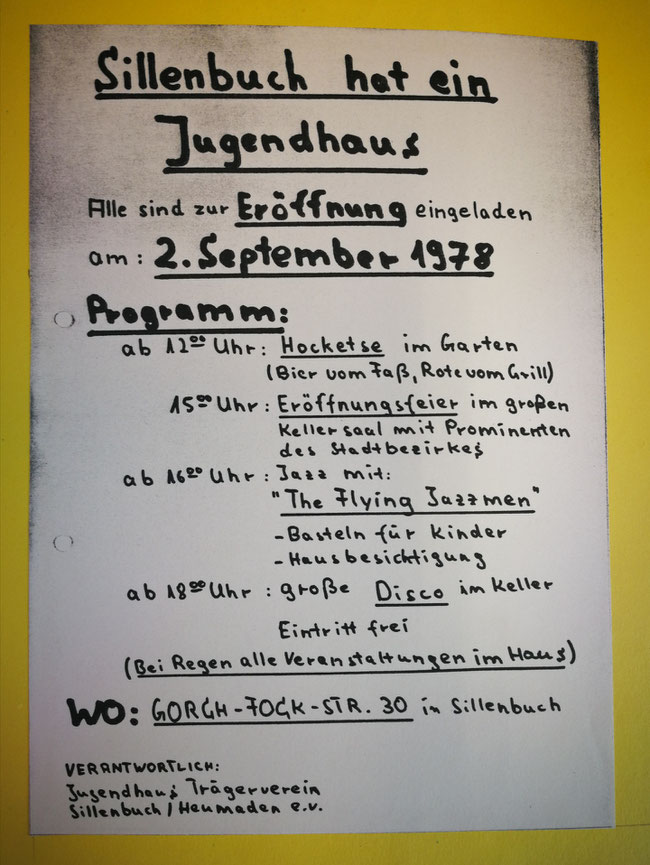 Sillenbuch hat ein
Jugendhaus
Alle sind zur Eröffnung eingeladen
am: 2. September 1978
Programm:
ab 12⁰⁰ Uhr: Hocketse im Garten
(Bier vom Faß, Rote vom Grill)
15⁰⁰ Uhr: Eröffnungsfeier im großen
Kellersaal mit Prominenten
des Stadtbezirkes
ab 16⁰⁰ Uhr: Jazz mit:
"The Flying Jazzmen"
- Basteln für Kinder
- Hausbesichtigung
ab 18⁰⁰ Uhr: große Disco im Keller
Eintritt frei
(Bei Regen alle Veranstaltungen im Haus)
WO: GORCH-FOCK-STR. 30 in Sillenbuch
VERANTWORTLICH:
Jugendhaus Trägerverein
Sillenbuch/Heumaden e.V.